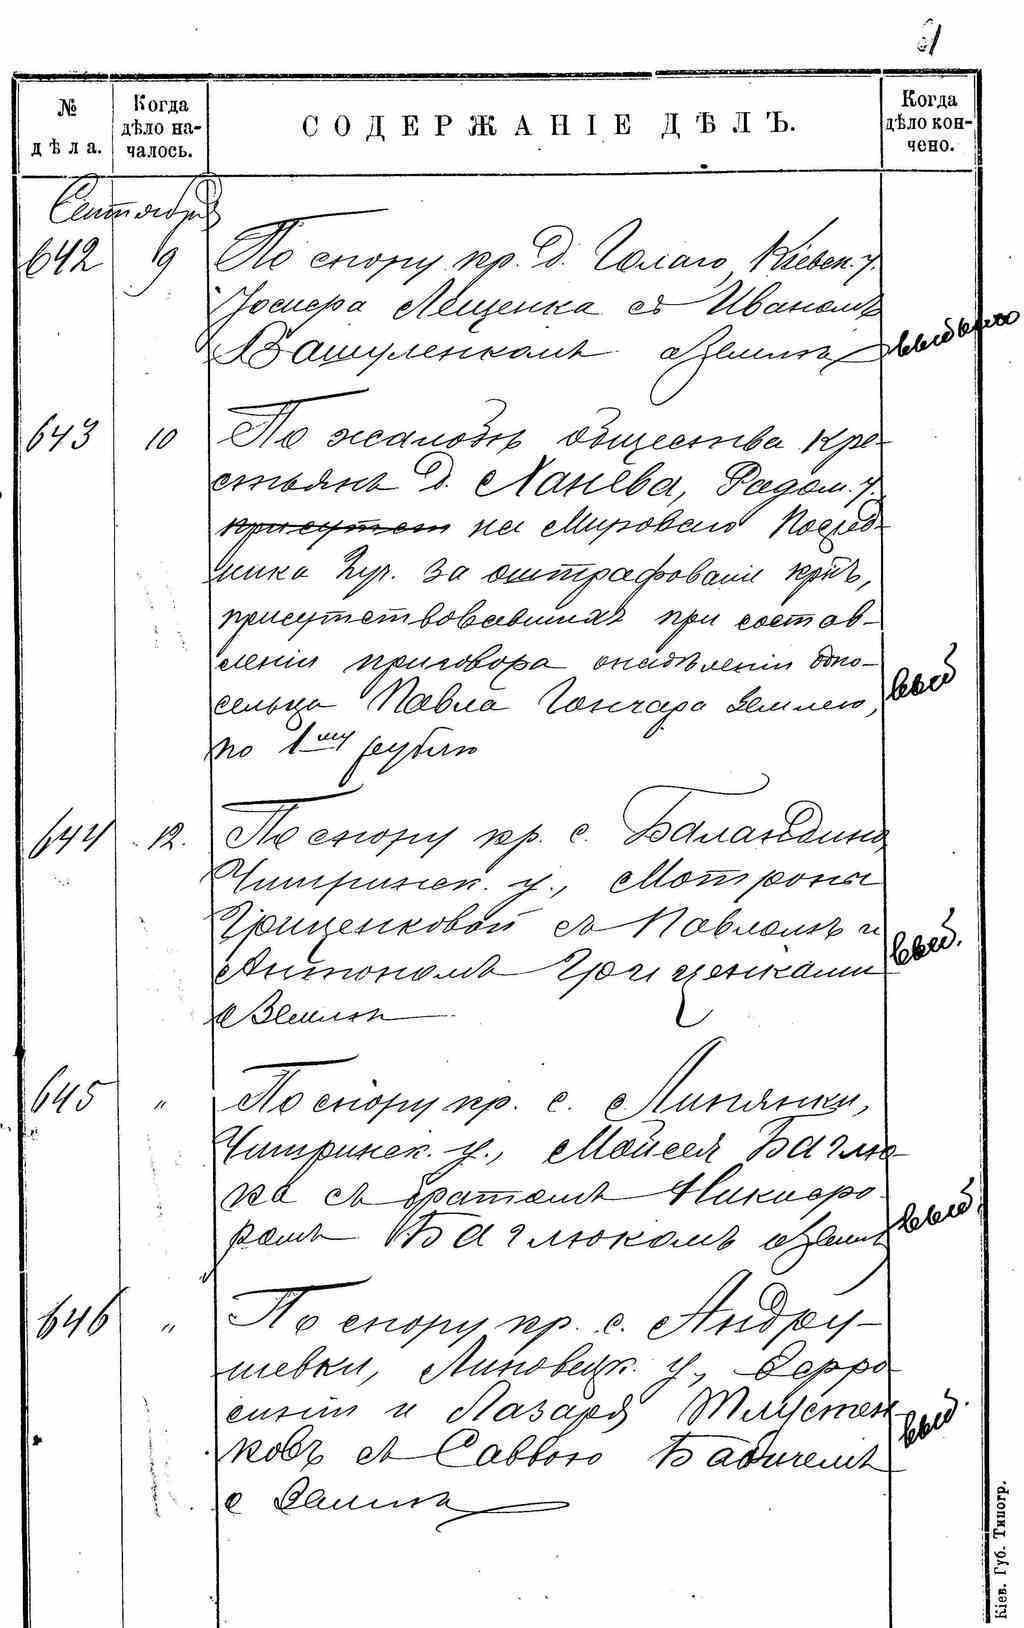 61
№ дѣла.
Когда дѣло началось.
СОДЕРЖАНІЕ ДѢЛЪ.
Когда дѣло кончено.
Сентября
642 9 По спору кр. д. Голаго, Кіевск. у.
Іосифа Лещенка съ Иваномъ
Вашуленкомъ о землѣ
выбыло
643 10 По жалобѣ общества кре-
стьянъ д. Ханева, Радом. у.
присутст на Мироваго Посред-
ника 2 уч. за оштрафованіе крнъ,
присутствовавшихъ при состав-
леніи приговора о надѣленіи одно-
сельца Павла Гончара землею,
выб
по 1му рублю
644 12. По спору кр. с. Баландина
Чигринск. у., Мотроны
Гриценковой съ Павломъ и
Антономъ Гриценками
выб.
о землѣ
645 " По спору кр. с. Липянки,
Чигринск. у., Мойсея Баглю-
ка съ братомъ Никифо-
ромъ Баглюкомъ о землѣ
выб.
646 " По спору кр. с. Андру-
шевки, Липовецк. у.,
и Лазаря
ковъ съ Саввою Бабичемъ
выб.
о землѣ
Кіев. Губ. Типогр.